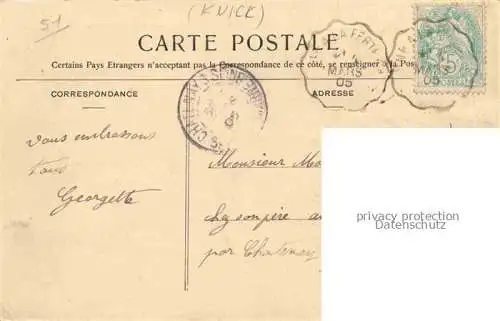 51
(KVICE)
CARTE POSTALE
Certains Pays Etrangers n'acceptant pas la Correspondance de ce côté, se renseigner à la Poste
CORRESPONDANCE
ADRESSE
MARS
05
5
Vous embrassons
tous
Georgette
Monsieur
chez son père
par Chatenay
privacy protection
Datenschutz